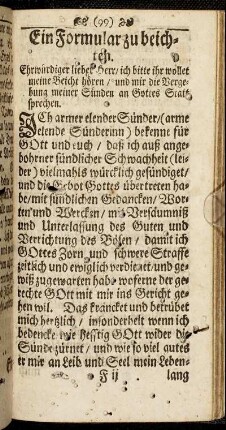 (99)
Ein Formular zu beich-
ten.
Ehrwürdiger lieber Herr / ich bitte ihr wollet
meine Beicht hören / und mir die Verge-
bung meiner Sünden an Gottes Statt
sprechen.
ICh armer elender Sünder / (arme
elende Sünderinn) bekenne für
GOtt und euch / daß ich auß ange-
bohrner sündlicher Schwachheit (lei-
der) vielmahls würcklich gesündiget /
und die Gebot Gottes übertreten ha-
be / mit sündlichen Gedancken / Wor-
ten und Wercken / mit Versäumniß
und Unterlassung des Guten und
Verrichtung des Bösen / damit ich
GOttes Zorn und schwere Straffe
zeitlich und ewiglich verdienet / und ge-
wiß zugewarten hab / woferne der ge-
rechte GOtt mit mir ins Gericht ge-
hen wil. Das kräncket und betrübet
mich hertzlich / insonderheit wenn ich
bedencke wie hefftig GOtt wider die
Sünde zürnet / und wie so viel gutes
er mir an Leib und Seel mein Leben-
F ij lang